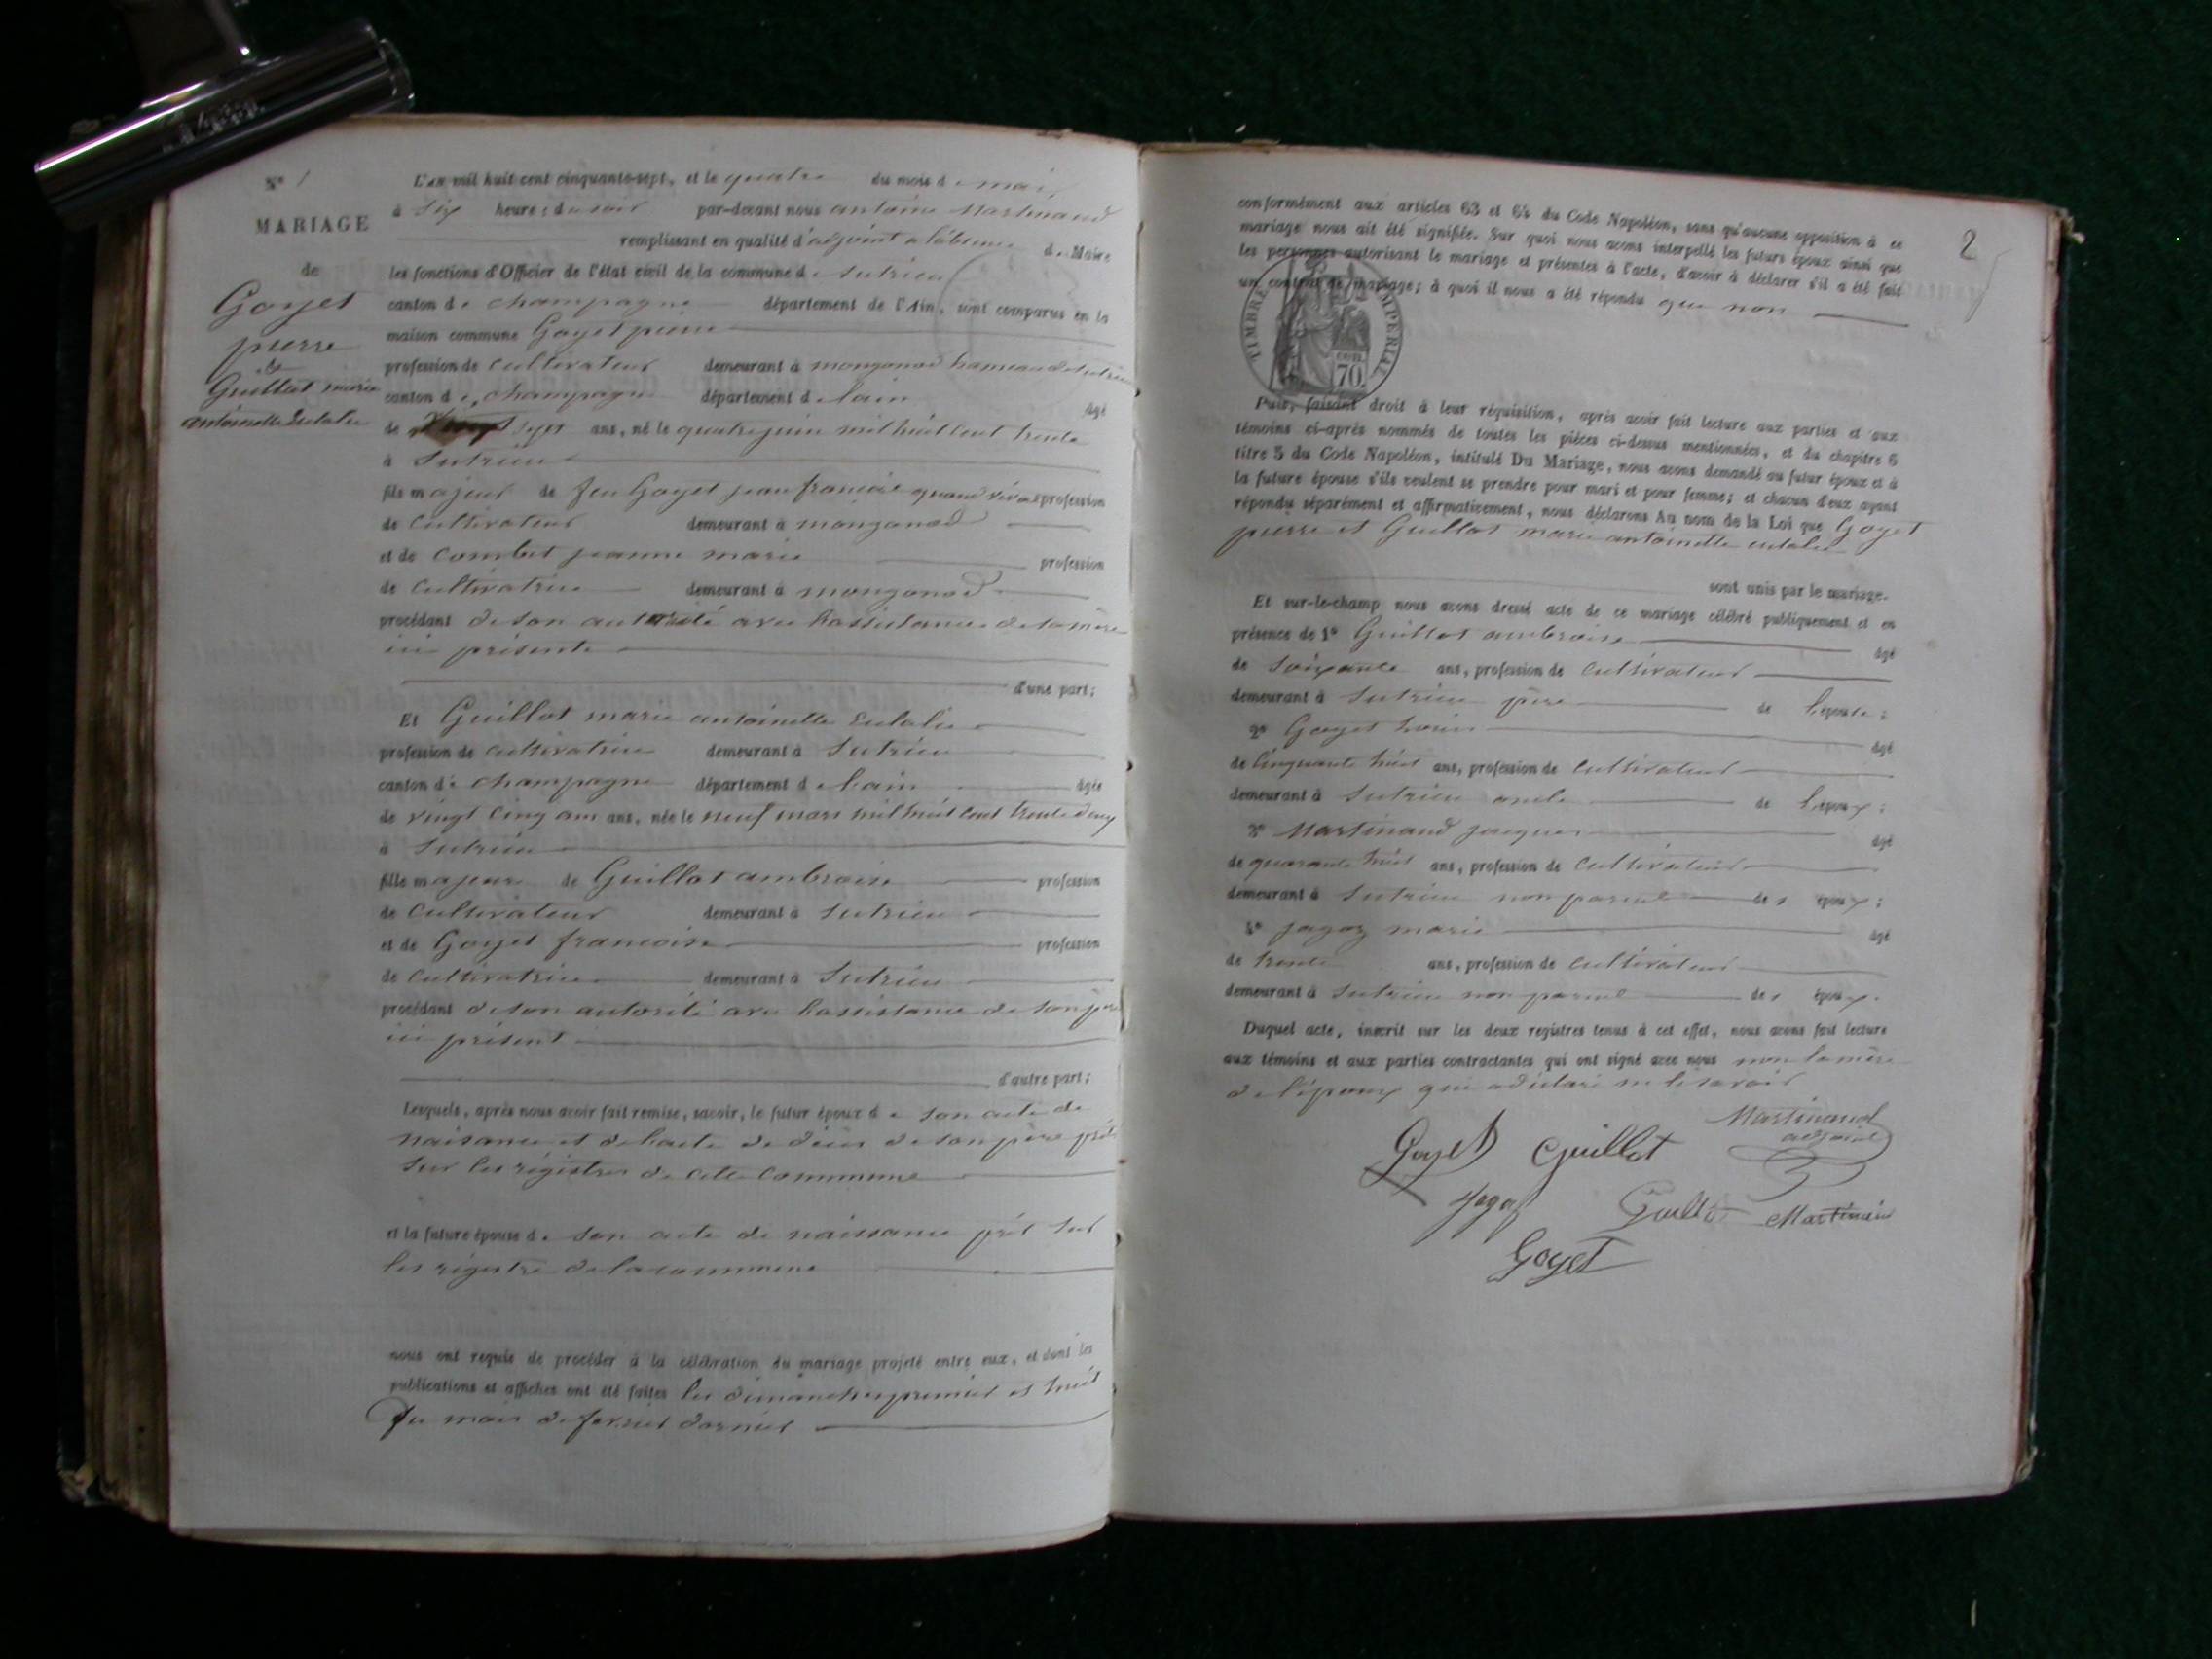 N° 1
MARIAGE
de
Goyet
pierre
&
Guillot marie
antoinette Eulalie
L'an mil huit cent cinquante-sept, et le quatre du mois de mai
à six heures du soir par-devant nous antoine Martinand
remplissant en qualité d'adjoint a l'absence du Maire
les fonctions d'Officier de l'état civil de la commune de Sutrieu
canton de champagne département de l'Ain, sont comparus en la
maison commune Goyet pierre
profession de cultivateur demeurant à mongonod hameau de Sutrieu
canton de champagne département de lain âgé
de sept ans, né le quatre juin mil huit cent trente
à Sutrieu
fils majeur de feu Goyet jean francois quand vivait profession
de cultivateur demeurant à mongonod
et de Combet jeanne marie profession
de cultivatrice demeurant à mongonod
procédant de son autorité avec lassistance de sa mère
ici présente
d'une part;
Et Guillot marie antoinette Eulalie
profession de cultivatrice demeurant à Sutrieu
canton de champagne département de lain âgée
de vingt cinq ans ans, née le neuf mars mil huit cent trente deux
à Sutrieu
fille majeure de Guillot ambroise profession
de cultivateur demeurant à Sutrieu
et de Goyet francoise profession
de cultivatrice demeurant à Sutrieu
procédant de son autorité avec lassistance de son père
ici présent
d'autre part;
Lesquels, après nous avoir fait remise, savoir, le futur époux de son acte de
naisance et de lacte de décès de son père pris
sur les régistres de cette commune
et la future épouse de son acte de naissance pris sur
les régistre de la commune
nous ont requis de procéder à la célébration du mariage projeté entre eux, et dont les
publications et affiches ont été faites les dimanches premier et huit
du mois de fevrier dernier
2
conformément aux articles 63 et 64 du Code Napoléon, sans qu'aucune opposition à ce
mariage nous ait été signifiée. Sur quoi nous avons interpellé les futurs époux ainsi que
les personnes autorisant le mariage et présentes à l'acte, d'avoir à déclarer s'il a été fait
un contrat de mariage; à quoi il nous a été répondu que non
TIMBRE IMPERIAL
70
Puis, faisant droit à leur réquisition, après avoir fait lecture aux parties et aux
témoins ci-après nommés de toutes les pièces ci-dessus mentionnées, et du chapitre 6
titre 5 du Code Napoléon, intitulé Du Mariage, nous avons demandé au futur époux et à
la future épouse s'ils veulent se prendre pour mari et pour femme; et chacun d'eux ayant
répondu séparément et affirmativement, nous déclarons Au nom de la Loi que Goyet
pierre et Guillot marie antoinette eulalie
sont unis par le mariage.
Et sur-le-champ nous avons dressé acte de ce mariage célébré publiquement et en
présence de 1° Guillot ambroise âgé
de soixante ans, profession de cultivateur
demeurant à Sutrieu père de lépouse;
2° Goyet âgé
de cinquante huit ans, profession de cultivateur
demeurant à Sutrieu oncle de lépoux;
3° Martinand jacques âgé
de quarante huit ans, profession de cultivateur
demeurant à Sutrieu non parent des époux;
4° jagoz marie âgé
de trente ans, profession de cultivateur
demeurant à Sutrieu non parent des époux.
Duquel acte, inscrit sur les deux registres tenus à cet effet, nous avons fait lecture
aux témoins et aux parties contractantes qui ont signé avec nous non la mère
de l'époux qui a déclaré ne le savoir
Martinand
adjoint
Goyet Guillot
Jagoz Guillot Martinand
Goyet